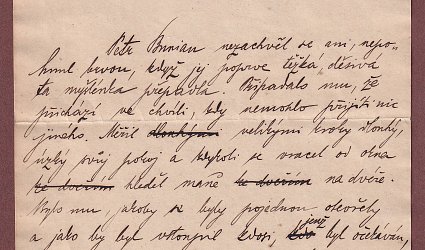 Petr Burian nezachvěl se ani, nepo-
hnul brvou, když jej poprvé těžká, děsivá
ta myšlénka přepadla. Připadalo mu, že
přichází ve chvíli, kdy nemohlo přijíti nic
jiného. Měřil dlouhými velikými kroky dlouhý,
úzký svůj pokoj a kdykoli se vracel od okna
ke dveřím hleděl maně ke dveřím na dvéře.
Bylo mu, jakoby se byly pojednou otevřely
a jako by byl vstoupil kdosi, jenž byl očekáván,